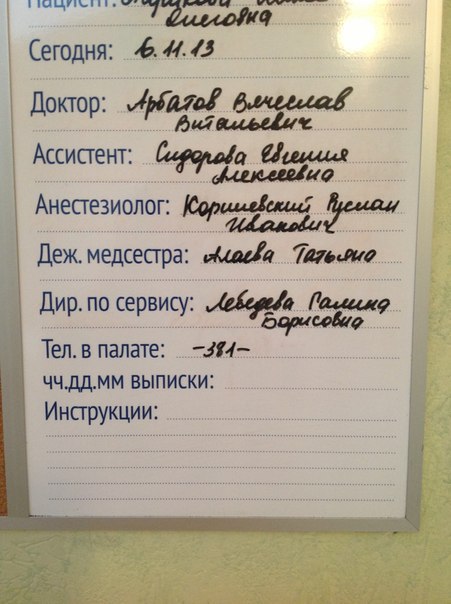 Пациент:
Олеговна
Сегодня: 6.11.13
Доктор: Арбатов Вячеслав
Витальевич
Ассистент: Сидорова Евгения
Алексеевна
Анестезиолог: Руслан
Иванович
Деж. медсестра: Татьяна
Дир. по сервису: Лебедева Галина
Борисовна
Тел. в палате: -381-
чч.дд.мм выписки:
Инструкции: